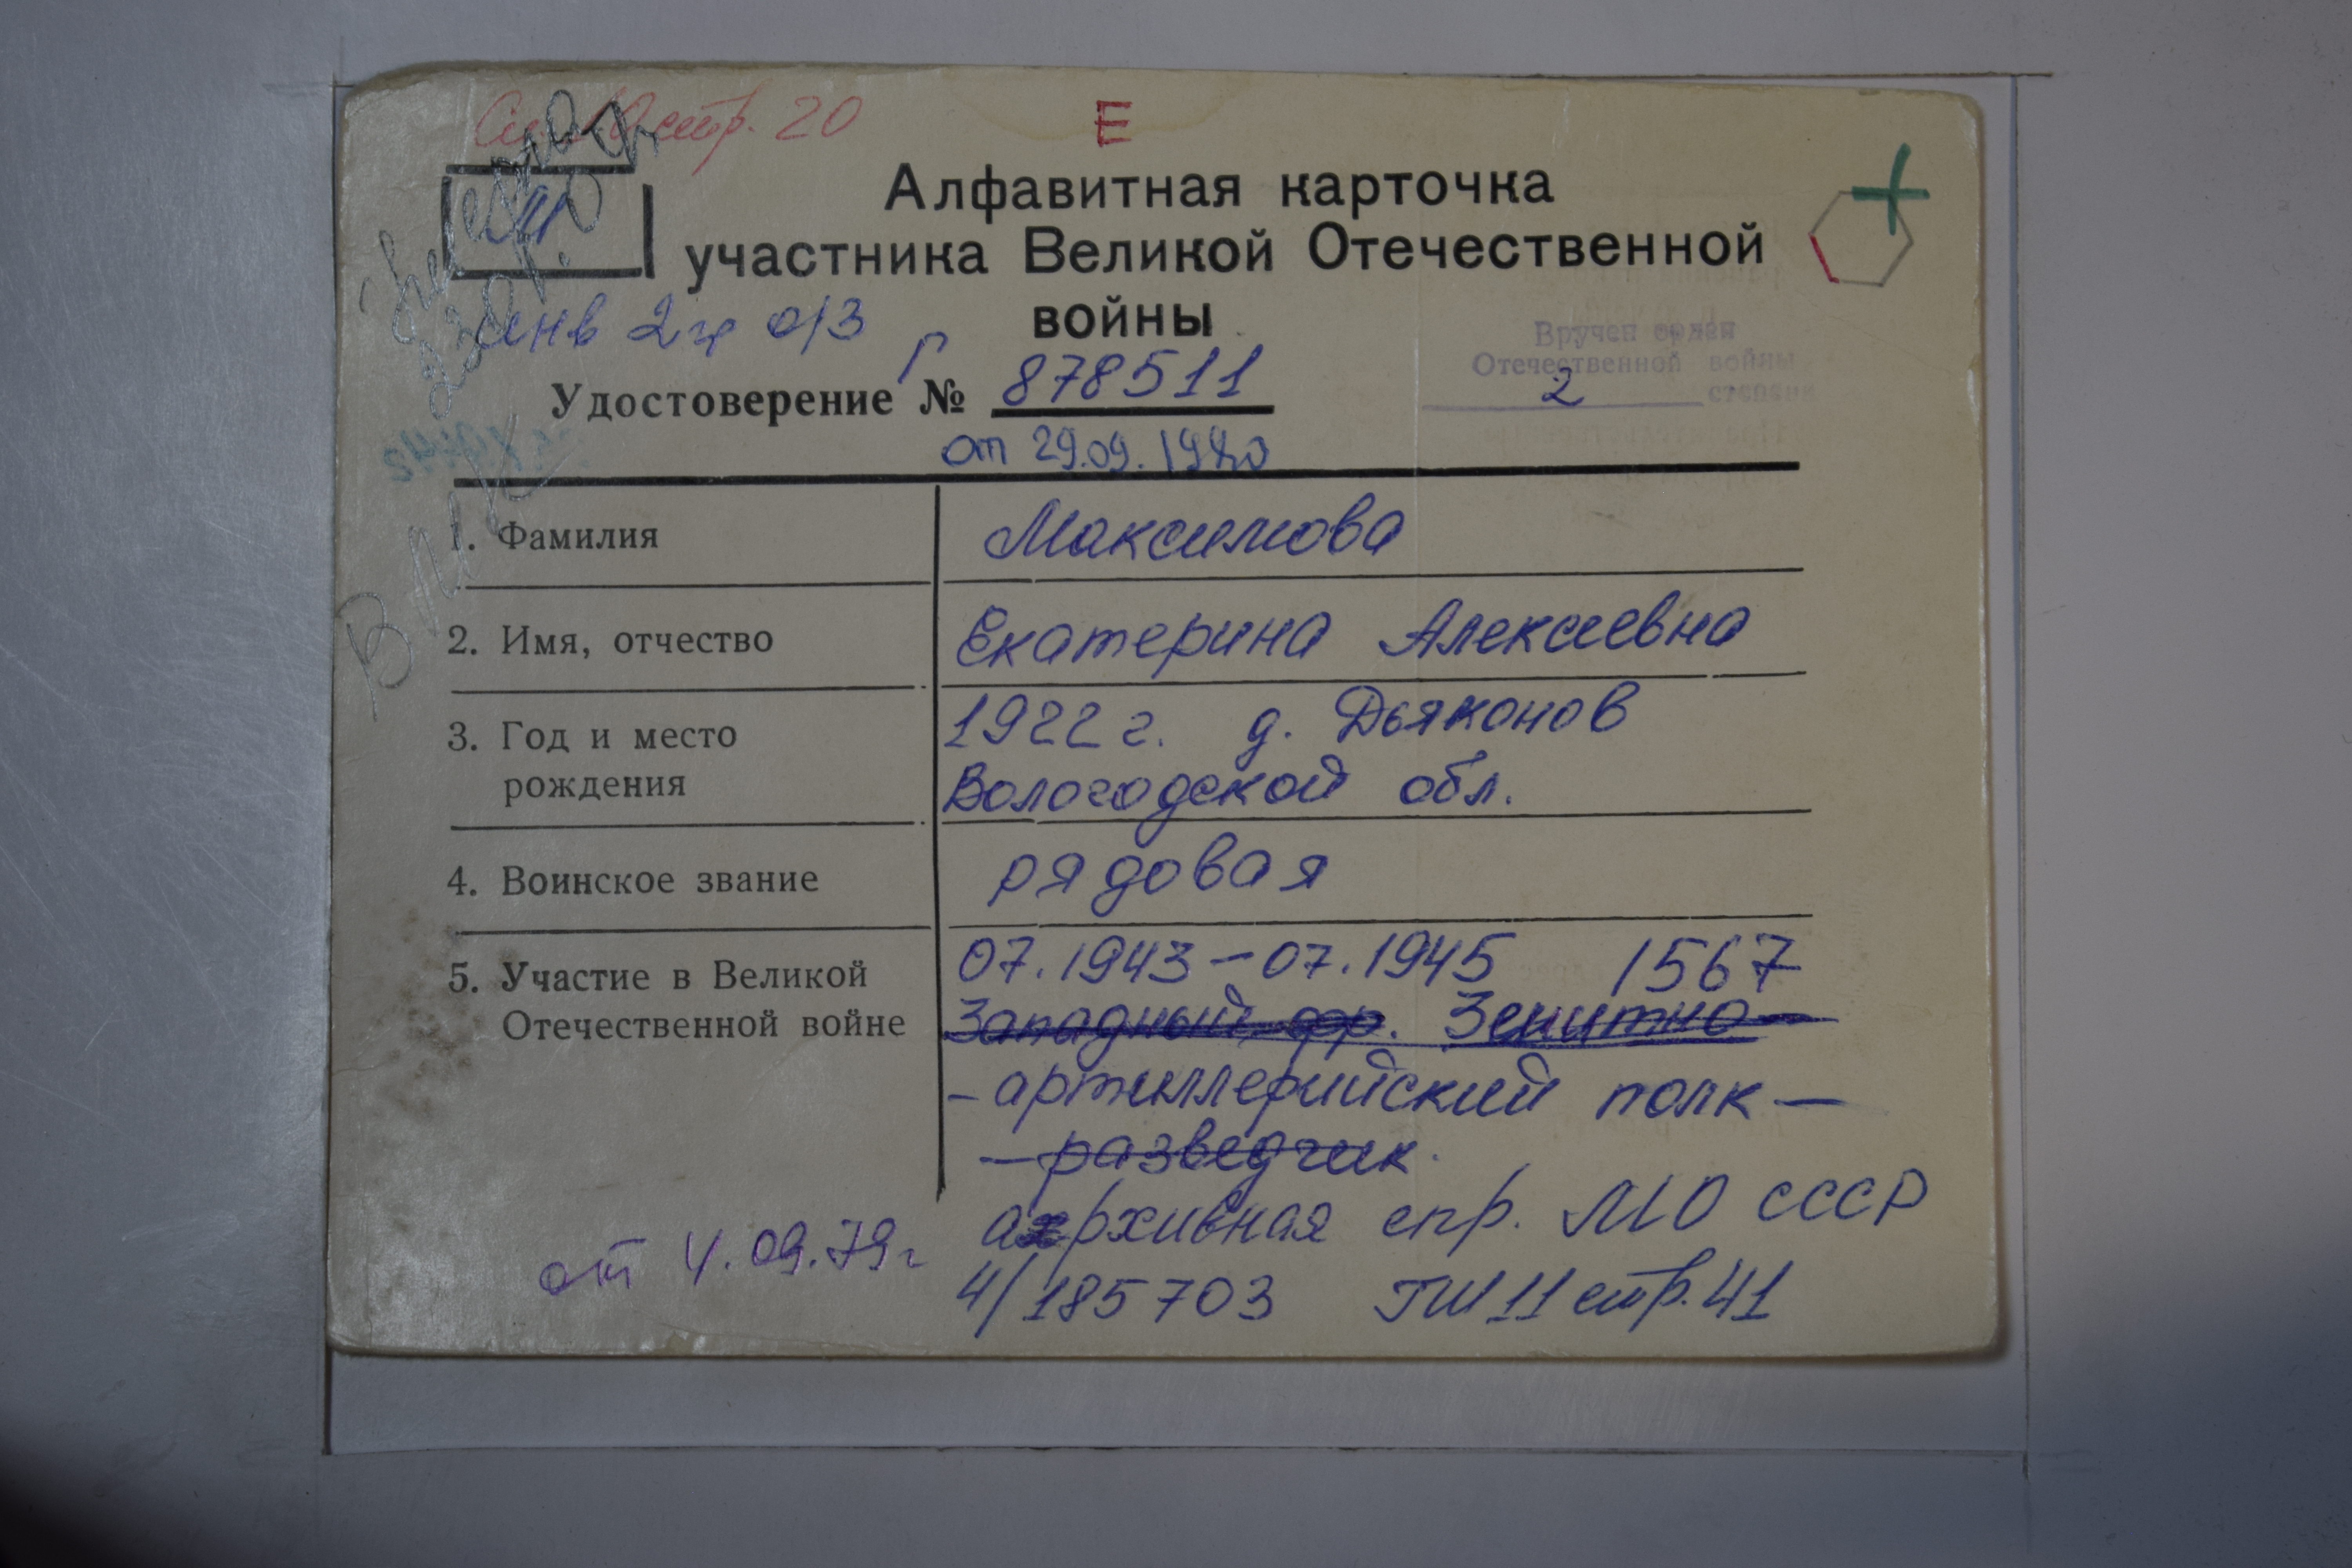 стр. 20
Е
Алфавитная карточка
участника Великой Отечественной
войны
инв 2 гр о/з
Вручен орден
Отечественной войны
2 степени
Удостоверение № Г 878511
от 29.09.1980
1. Фамилия Максимова
2. Имя, отчество Екатерина Алексеевна
3. Год и место 1922 г. д. Дьяконов
рождения Вологодской обл.
4. Воинское звание рядовая
5. Участие в Великой 07.1943 – 07.1945 1567
Отечественной войне Западный фр. Зенитно-
- артиллерийский полк –
– разведчик.
архивная спр. МО СССР
от 4.09.79г 4/185703 ГШ 11 стр. 41